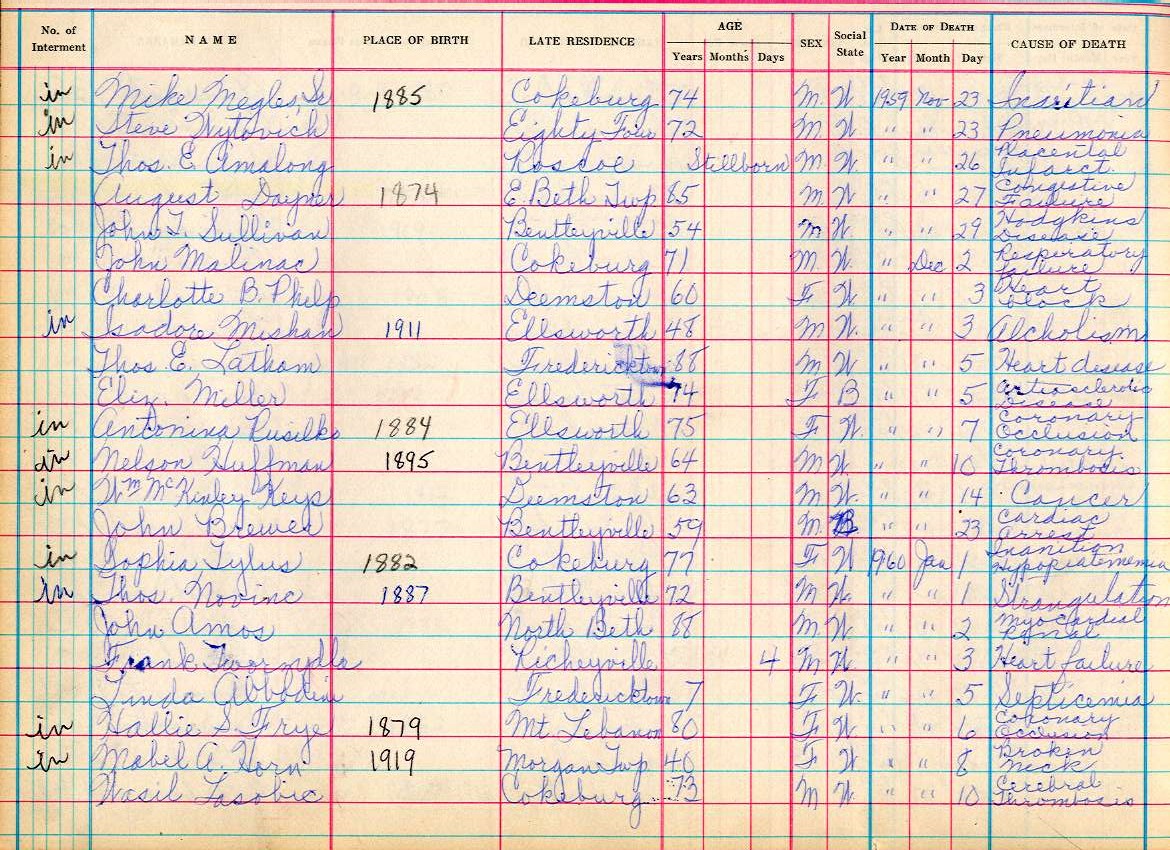 No. of Interment NAME PLACE OF BIRTH LATE RESIDENCE AGE Years Months Days SEX Social State DATE OF DEATH Year Month Day CAUSE OF DEATH
in Mike Megles, Sr 1885 Cokeburg 74 M. W. 1959 Nov 23 Inanitian
in Steve Wytovich Eighty Four 72 M W. " " 23 Pneumonia
in Thos. E. Amalong Roscoe Stillborn M. W. " " 26 Placental Infarct.
August 1874 E. Beth Twp 85 M. W. " 27 Congestive Failure
John T. Sullivan Bentleyville 54 M W. " " 29 Hodgkins Disease
John Malinac Cokeburg 71 M. W. " Dec 2 Respiratory failure
Charlotte B. Phelp Deemston 60 F W. " " 3 Heart block
in Isadore Mishan 1911 Ellsworth 48 M W. " " 3 Alcholism
Thos. E. Latham Fredericktown 88 M W. " " 5 Heart disease
Eliz. Miller Ellsworth 74 F B " " 5 Disease
in Antonina Rusilko 1884 Ellsworth 75 F W. " " 7 Coronary Occlusion
in Nelson Huffman 1895 Bentleyville 64 M W. " " 10 Coronary Thrombosis
in Wm McKinley Keys Deemston 63 M W. " " 14 Cancer
John Brewer Bentleyville 59 M. B " " 23 Cardiac arrest
in Sophia Tylus 1882 Cokeburg 77 F W 1960 Jan 1 Inanition
in Thos. Novinc 1887 Bentleyville 72 M W. " " 1 Strangulation
John Amos North Beth 88 M. W. " " 2 Myocardial Renal
Frank Richeyville 4 M W. " " 3 Heart failure
Linda Abbadini Fredericktown 7 F W. " " 5 Septicemia
in Hallie S. Frye 1879 Mt. Lebanon 80 F W. " " 6 Coronary Occlusion
in Mabel A. Horn 1919 Morgan Twp 40 F W. " " 8 Broken neck
Wasil Lasobic Cokeburg 73 M W. " " 10 Cerebral Thrombosis